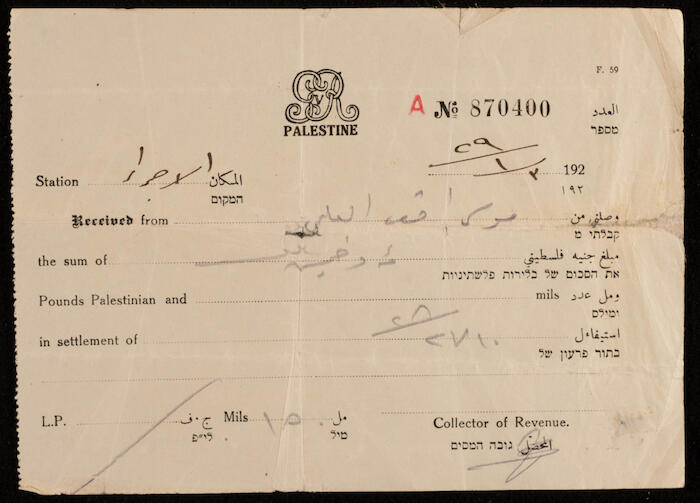 F. 59
GvR
PALESTINE
A № 870400 العدد
מספר
٢٩/١/٣ 192
١٩٢
Station المكان
המקום
Received from وصلني من
קבלתי מ
the sum of مبلغ جنيه فلسطيني
את הסכום של בלירות פלשתיניות
Pounds Palestinian and mils ومل عدد
ומילס
in settlement of ٢٨/٢٧١٠ استيفاءً ל
בתור פרעון של
L.P. ج.ف Mils ١٥٠ مل
לי״פ מיל
Collector of Revenue.
المحصل גובה המסים